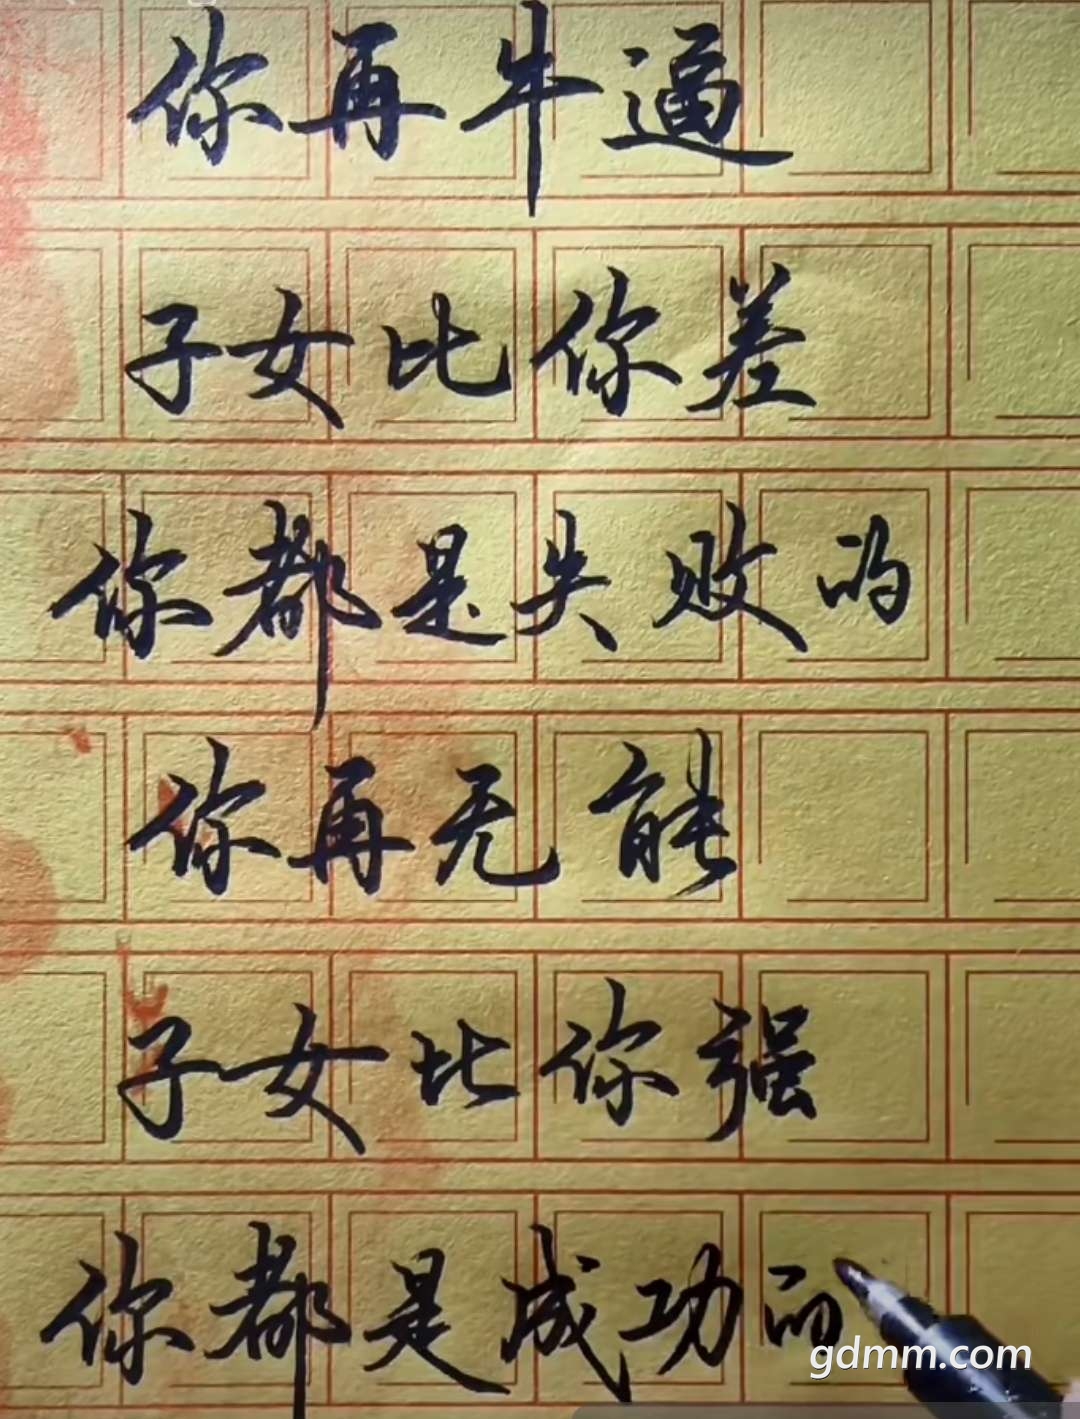 你再牛逼
子女比你差
你都是失败的
你再无能
子女比你强
你都是成功的
gdmm.com